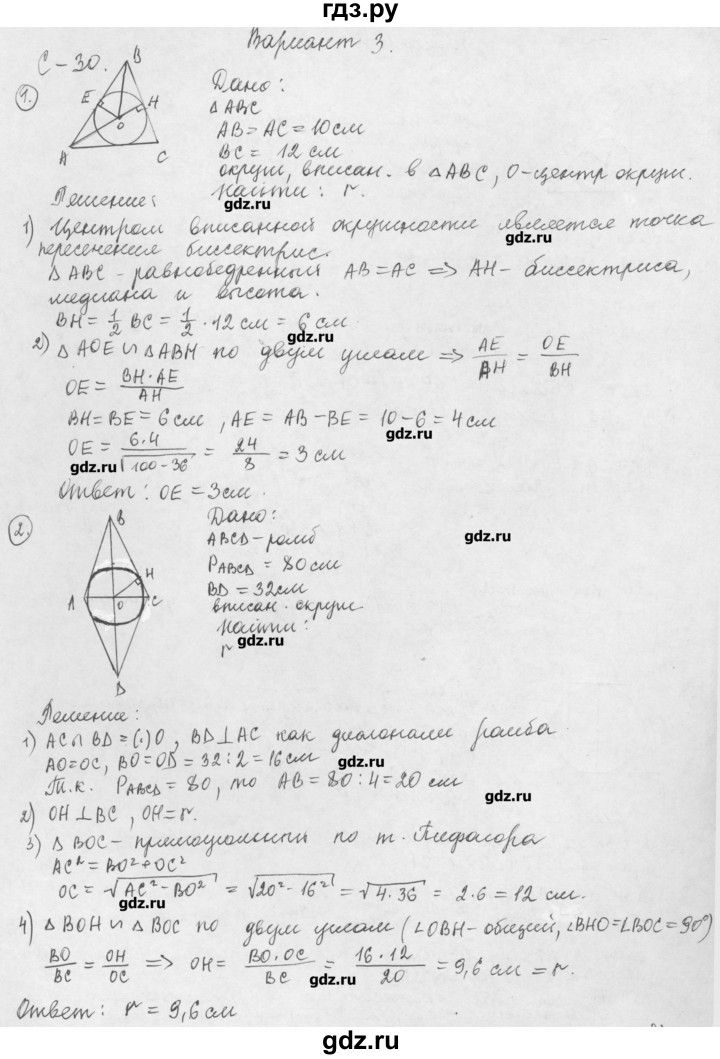 гдз.ру
Вариант 3.
С-30.
1.
B
E
H
O
A
C
Дано:
△ABC
AB = AC = 10 см
BC = 12 см
окруж, вписан. в △ABC, O-центр окруж.
Найти: r.
gdz.ru
Решение:
1) Центром вписанной окружности является точка
gdz.ru
пересечения биссектрис.
△ABC - равнобедренный AB = AC => AH - биссектриса,
медиана и высота.
BH = 1/2 BC = 1/2 · 12 см = 6 см
gdz.ru
2) △AOE ∽ △ABH по двум углам => AE/AH = OE/BH
OE = BH·AE/AH
BH = BE = 6 см, AE = AB - BE = 10 - 6 = 4 см
OE = 6·4/√100-36 = 24/8 = 3 см
gdz.ru
gdz.ru
Ответ: OE = 3 см.
2.
B
H
A
O
C
D
Дано:
ABCD - ромб
gdz.ru
P ABCD = 80 см
BD = 32 см
вписан. окруж
Найти:
r
gdz.ru
Решение:
1) AC ∩ BD = (·) O, BD ⊥ AC как диагонали ромба
AO = OC, BO = OD = 32 : 2 = 16 см
gdz.ru
Т.к. P ABCD = 80, то AB = 80 : 4 = 20 см
2) OH ⊥ BC, OH = r.
gdz.ru
3) △BOC - прямоугольный по т. Пифагора
AC² = BO² + OC²
OC = √AC² - BO² = √20² - 16² = √4·36 = 2·6 = 12 см.
gdz.ru
4) △BOH ∽ △BOC по двум углам (∠OBH - общий, ∠BHO = ∠BOC = 90°)
BO/BC = OH/OC => OH = BO·OC/BC = 16·12/20 = 9,6 см = r.
gdz.ru
Ответ: r = 9,6 см
gdz.ru